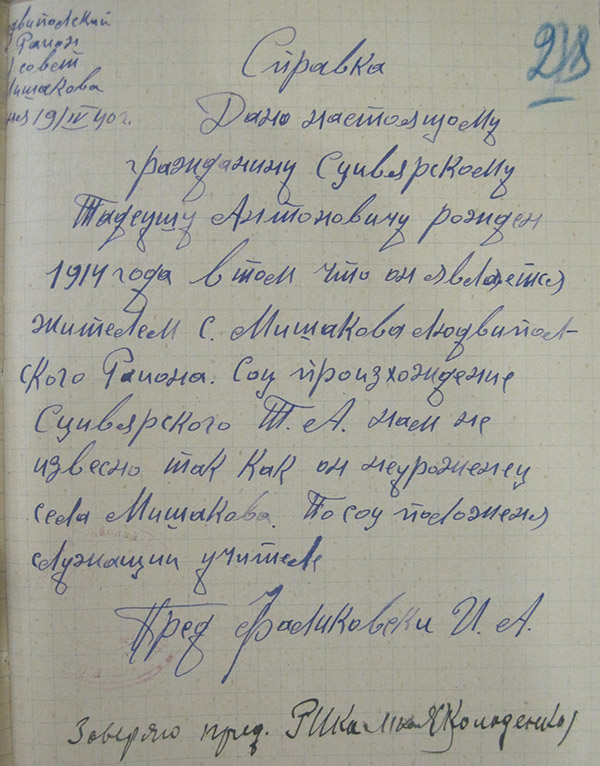 двипольский
Район
совет
Мишакова
19/IV 40 г.
218
Справка
Дано настоящому
гражданину Сцивярскому
Тадеушу Антоновичу рожден
1914 года в том что он является
жителем с. Мишакова Людвипол-
ского Района. Соц произхождение
Сцивярского Т. А. нам не
извесно так как он неуроженец
села Мишакова. По соц положеня
служащий учитель
Пред Фаликовски И. А.
Заверяю пред. РИКа